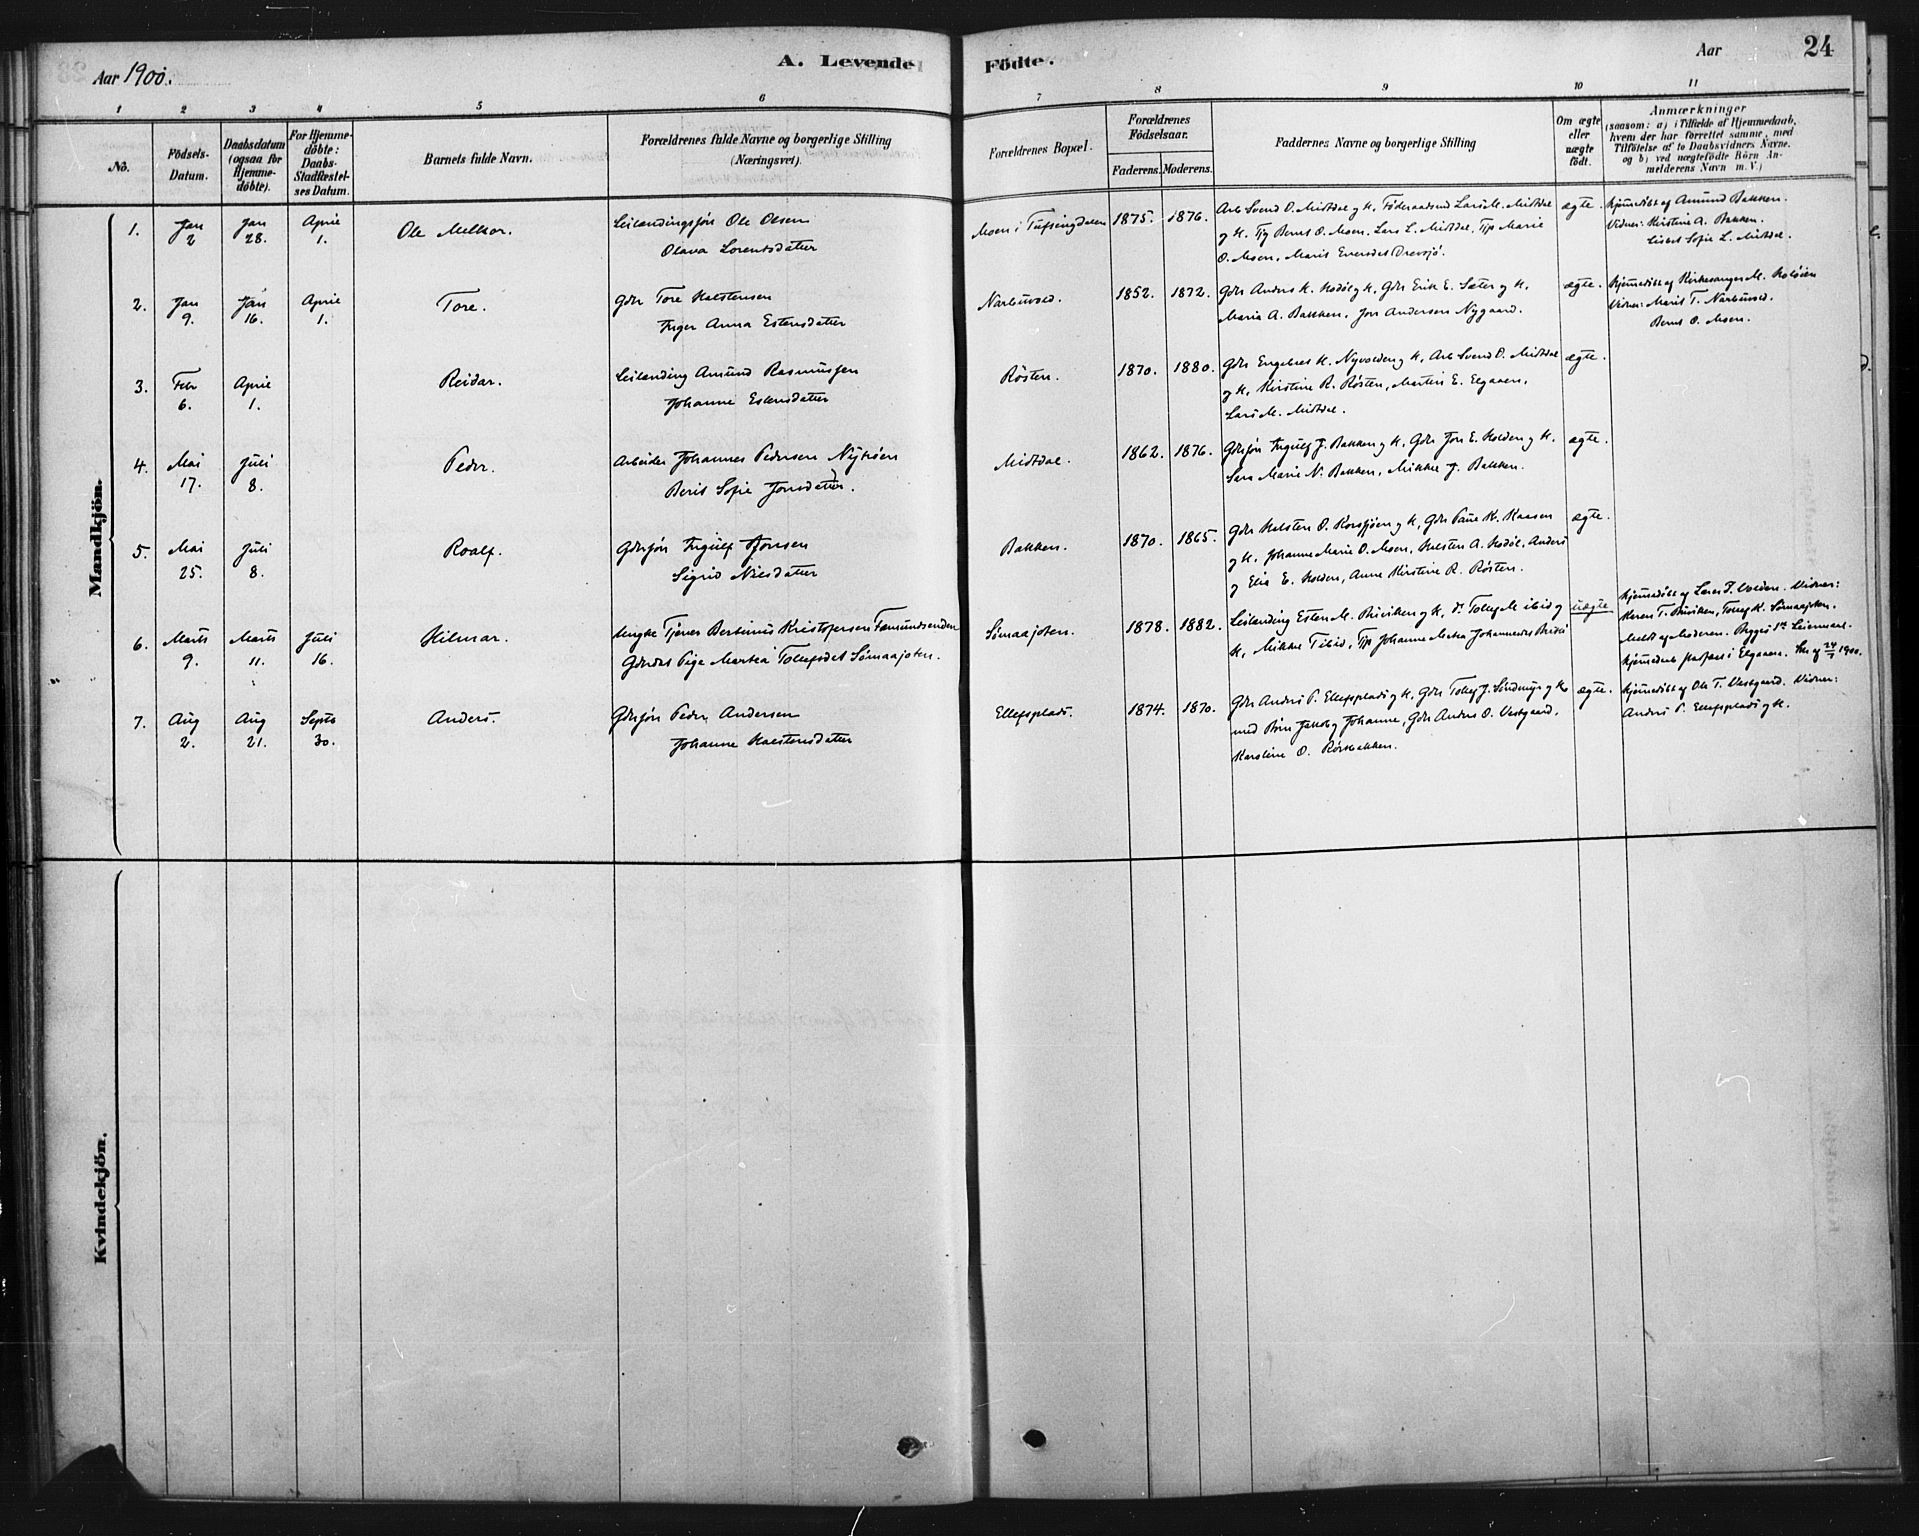 Aar 1900.
A. Levende Födte.
Aar
24
1 2 3 4 5 6 7 8 9 10 11
No.
Födsels-Datum.
Daabsdatum (ogsaa for Hjemmedöbte).
For Hjemmedöbte: Daabs-Stadfæstelses Datum.
Barnets fulde Navn.
Forældrenes fulde Navne og borgerlige Stilling (Næringsvei).
Forældrenes Bopæl.
Forældrenes Födselsaar.
Faderens. Moderens.
Faddernes Navne og borgerlige Stilling
Om ægte eller uægte födt.
Anmærkninger
(saasom: a) i Tilfælde af Hjemmedaab,
hvem der har forrettet samme, med
Tilföielse af to Daabsvidners Navne,
og b) ved uægtefödte Börn An-
melderens Navn m. V.)
Mandkjön.
1. Jan 2 Jan 28. April 1. Ole Melkor.
Leilandingssön Ole Olsen
Olava Lorentsdatter
Moen i Tufsingdalen 1875. 1876.
Arb Svend O. Mistdal og K, Föderaadsmd Lars M. Mistdal
og K. Tjg Bernt O. Moen, Lars L. Mistdal, Tjp Marie
O. Moen, Marit Evensdet Drevsjö.
ægte.
Hjemmedöbt af Amund Bakken.
Vidner: Kirstine A. Bakken.
Lisbet Sofie L. Mistdal.
2. Jan 9. Jan 16. April 1. Tore.
Gdr Tore Halstensen
Inger Anna Estensdatter
Narbuvold. 1852. 1872.
Gdr Anders K. Hodöl og K, Gdr Erik E. Sæter og K.
Maria A. Bakken, Jon Andersen Nygaard.
ægte.
Hjemmedöbt af Kirkesanger M. Koloien
Vidner: Marit T. Narbuvold.
Bernt O. Moen.
3. Febr 6. April 1. Reidar.
Leilanding Amund Rasmussen
Johanne Estensdatter
Rösten. 1870. 1880.
Gdr Engebret H. Nyvolden og K, Arb Svend O. Mistdal
og K, Kirstine R. Rösten, Martin E. Elgaaen,
Lars M. Mistdal.
ægte.
4. Mai 17. Juli 8. Peder.
Arbeider Johannes Pedersen Nytröen
Berit Sofie Jonsdatter.
Mistdal. 1862. 1876.
Gdrsön Ingulf J. Bakken og K, Gdr Jon E. Holden og K.
Sara Marie N. Bakken, Mikkel J. Bakken.
ægte.
5. Mai 25. Juli 8. Roalf.
Gdrsön Ingulf Jonsen
Sigrid Nilsdatter
Bakken. 1870. 1865.
Gdr Halsten O. Korssjöen og K, Gdr Paul K. Kaasen
og K, Johanne Marie O. Moen, Halsten A. Hodöl, Anders
og Elie E. Holden, Anne Kirstine R. Rösten.
ægte.
6. Marts 9. Marts 11. Juli 16. Hilmar.
Ungkr Tjener Bertinus Kristofersen Fæmundsenden
Gdrdat Pige Martea Tollefsdet Sömaajoten.
Sömaajoten. 1878. 1882.
Leilanding Esten M. Buviken og K, do Tollef M ibid og
K, Mikkel T ibid, Tjp Johanne
uægte
Hjemmedöbt af Lars J. Volden. Vidner:
Karen T. Buviken, Tollef K. Sömaajoten.
Meldt af Moderen.
7. Aug 2. Aug 21. Septb 30. Anders.
Gdrsön Peder Andersen
Johanne Halstensdatter
Ellefsplads. 1874. 1870.
Gdr Anders P. Ellefsplads og K, Gdr Tollef J. Sundmyr og K
med Börn Jakob og Johanne, Gdr Anders O. Vestgaard,
Karoline O. Rösbakken.
ægte.
Hjemmedöbt af Ole T. Vestgaard. Vidner:
Anders P. Ellefsplads og K.
Kvindekjön.